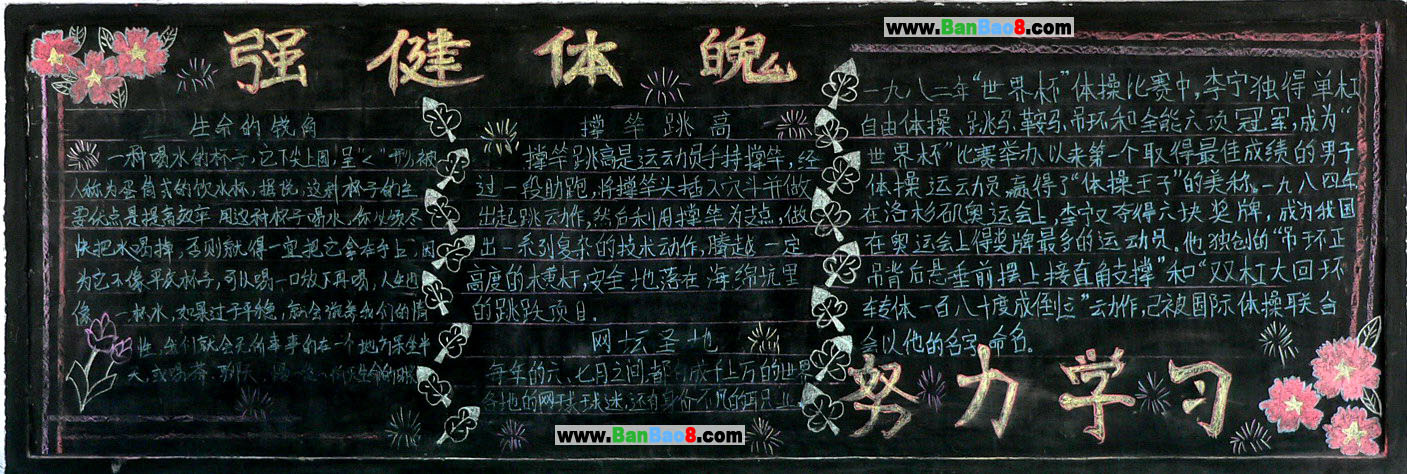 强健体魄
www.BanBao8.com
生命的锐角
一种喝水的杯子,它下尖上圆,呈“<”形,被
人称为蛋筒式的饮水杯,据说,这种杯子的主
要优点是提高效率,用这种杯子喝水,你必须尽
快把水喝掉,否则就得一直把它拿在手上,因
为它不像平底杯子,可以喝一口放下再喝,人生也
像一杯水,如果过于平稳,就会滋养我们的惰
性,我们就会无所事事的在一个地方呆坐半
天,或喝茶、聊天
撑竿跳高
撑竿跳高是运动员手持撑竿,经
过一段助跑,将撑竿头插入穴斗并做
出起跳动作,然后利用撑竿为支点,做
出一系列复杂的技术动作,腾越一定
高度的横杆,安全地落在海绵坑里
的跳跃项目.
网坛圣地
每年的六、七月之间,都有成千上万的世界
各地的网球球迷,还有身份不凡的
www.BanBao8.com
一九八二年“世界杯”体操比赛中,李宁独得单杠
自由体操、跳马、鞍马、吊环和全能六项冠军,成为“
世界杯”比赛举办以来第一个取得最佳成绩的男子
体操运动员,赢得了“体操王子”的美称.一九八四年
在洛杉矶奥运会上,李宁又夺得六块奖牌,成为我国
在奥运会上得奖牌最多的运动员.他独创的“吊环正
吊背后悬垂前摆上接直角支撑”和“双杠大回环
转体一百八十度成倒立”动作,已被国际体操联合
会以他的名字命名.
努力学习